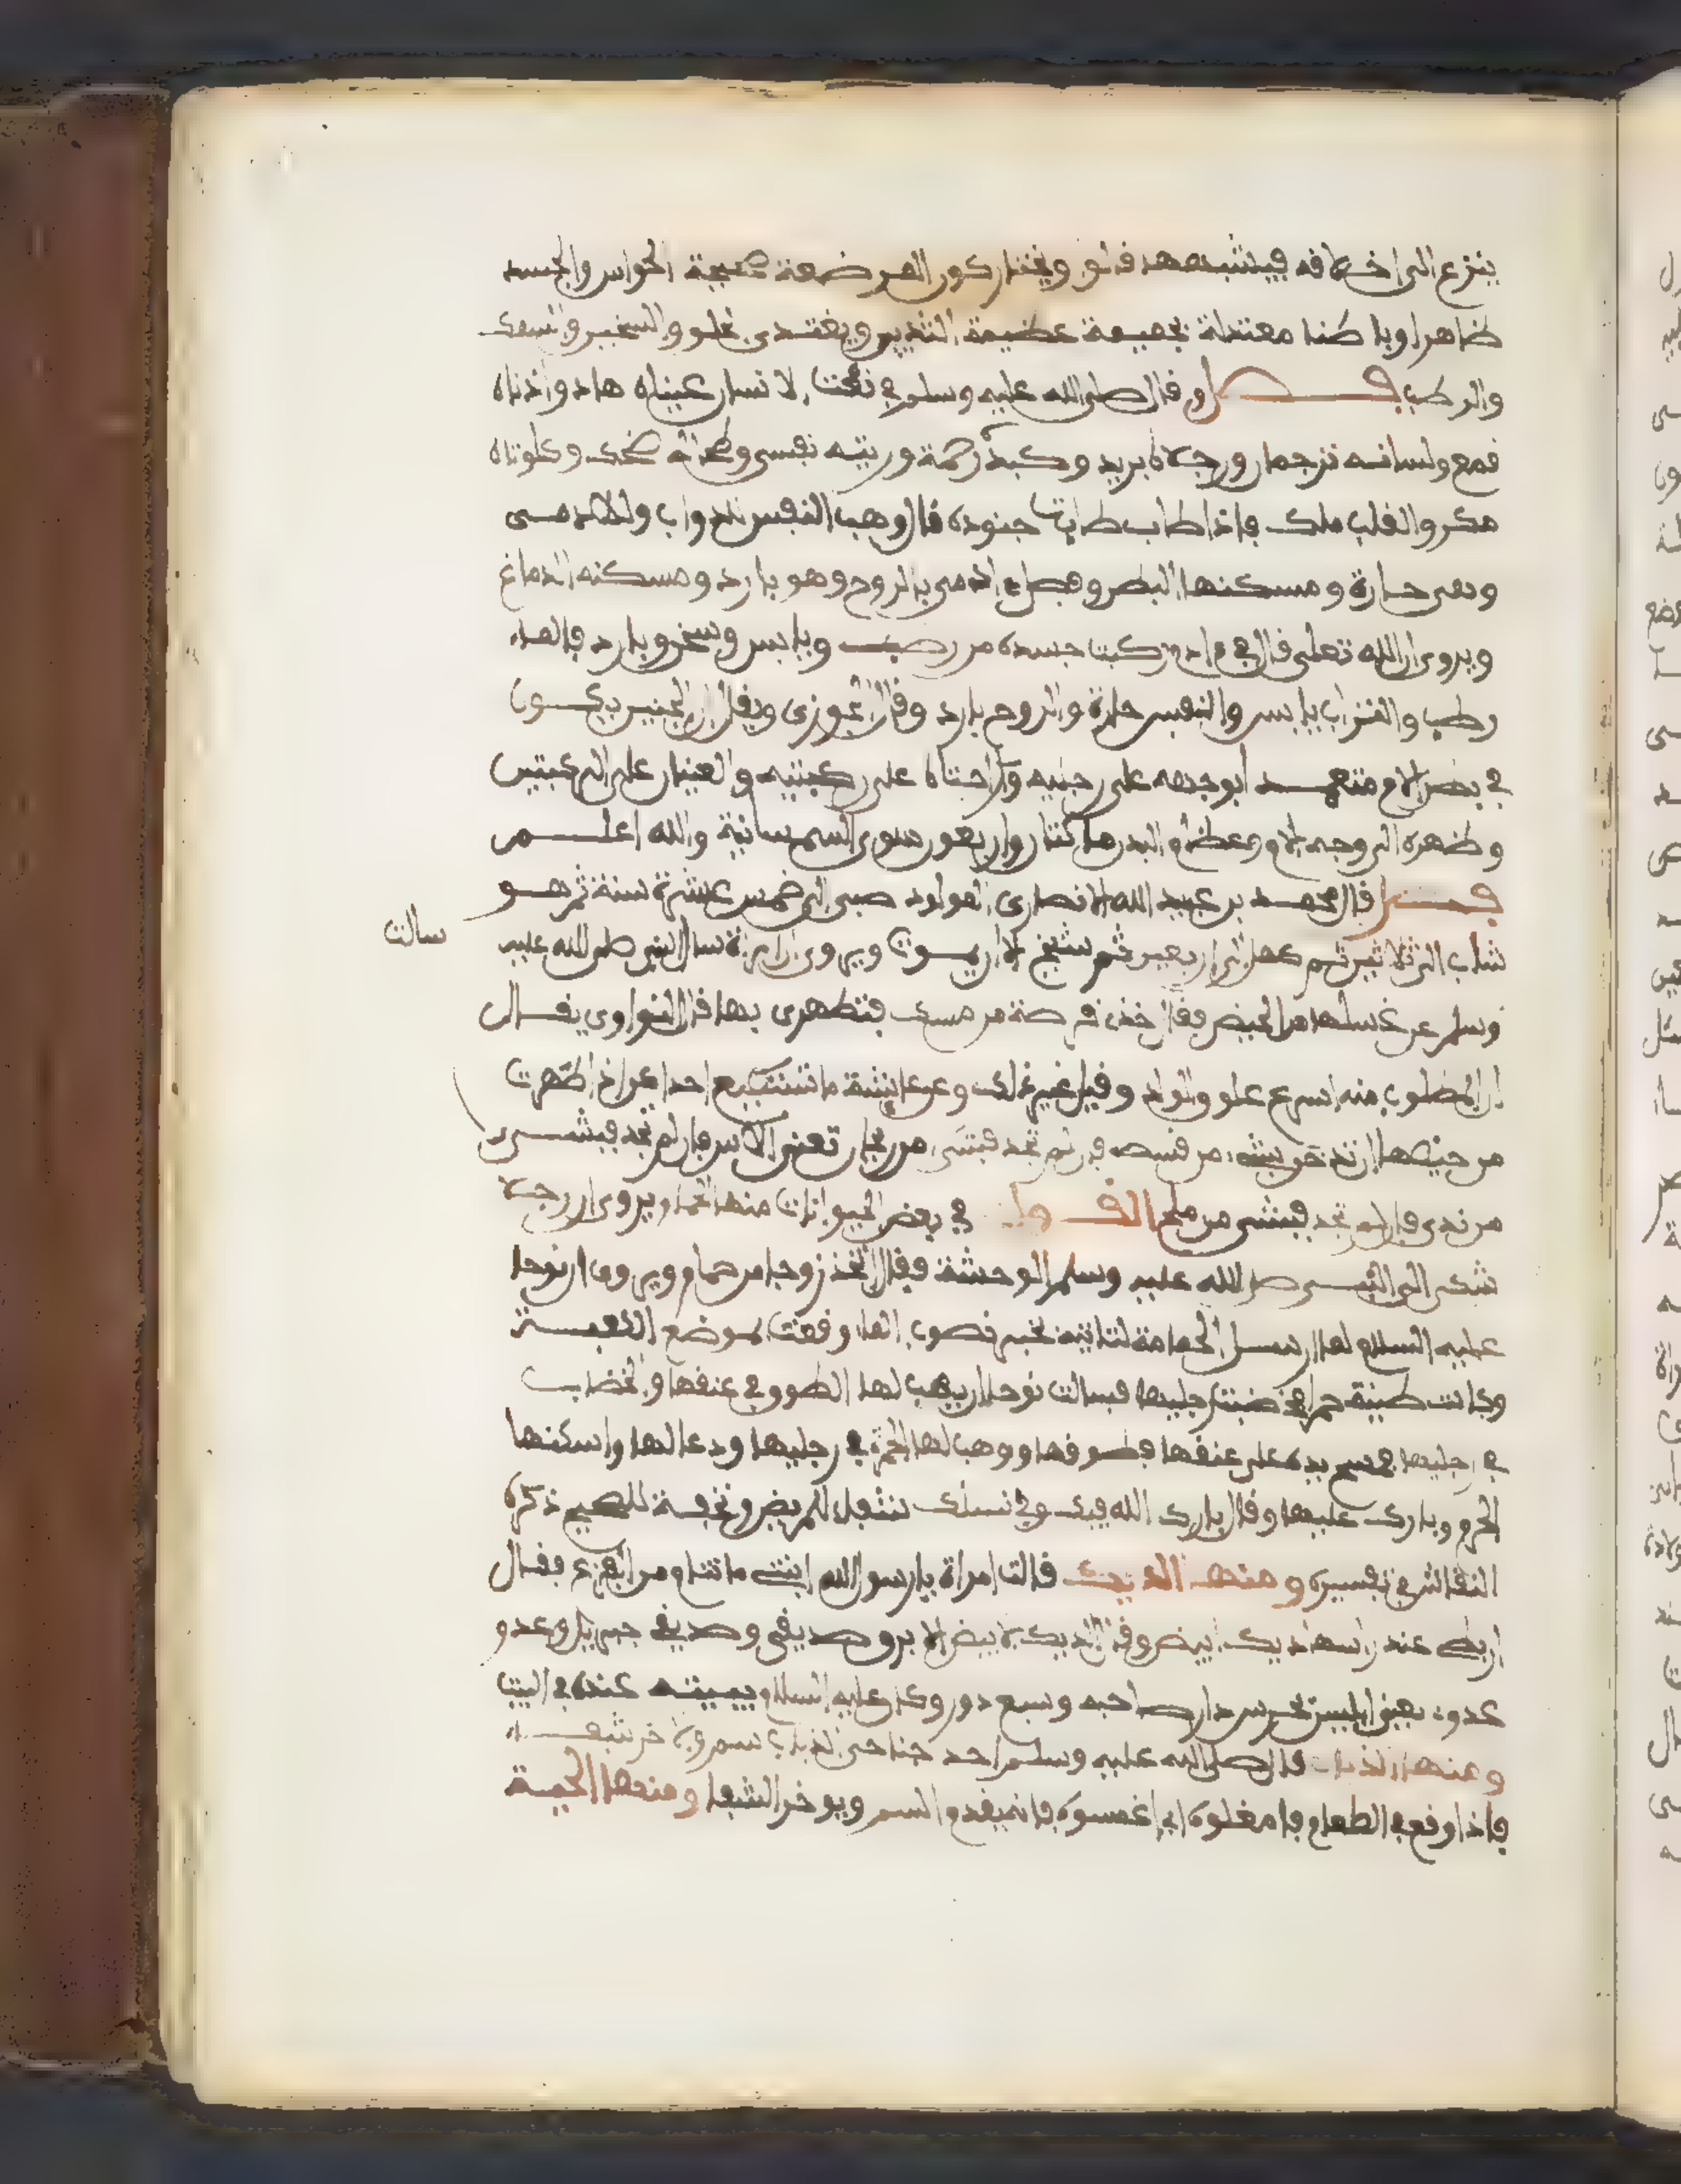 ينزع الى اخلافه فيشبهها قالو ويختار كون المرضعة صحيحة الحواس والجسد
ظاهرا وباطنا معتدلة عظيمة الثديين ويفتدى والسمك
والرطب فصل وقال صلى الله عليه وسلم في نعت الانسان عيناه هاد واذناه
قمع ولسانه ترجمان ورجلاه بريد وكبده رحمة وريته نفس وطحاله ضحك وكلوتاه
مكر والقلب ملك فاذا طاب طابت جنوده قال وهب النفس للدواب ولـلادمى
وهى حارة ومسكنها البطن وفضل الادمى بالروح وهو بارد ومسكنه الدماغ
ويروى ان الله تعلى قال في ادم ركبت جسده من رطب ويابس وسخن وبارد فالماء
رطب والتراب يابس والنفس حارة والروح بارد وقال الجوزى ويقال ان الجنين يكون
في بطن الام ابوجهه على رجليه والراحتان على ركبتيه والعينان على الركبتين
وظهره الى وجه الام وعظام البدن مائتان واربعون سوى السمسانية والله اعلم
فصل قال محمد بن عبيد الله الانصارى المولود صبى الى خمس عشرة سنة ثم هو
شاب الى ثلاثين ثم كهل الى اربعين ثم شيخ الى ان يموت ويروى ان امراة سال النبى صلى الله عليه
سالت
وسلم عن غسلها من الحيض فقال خذى فرصة من مسك فتطهرى بها قال النواوى يقال
ان المطلوب منه اسرع علوق الولد وقيل غير ذلك وعن عائشة ما تستطيع احداكن اذا طهرت
من حيضها ان تدخن بشىء من قسط فان لم تجد فبشىء من ريحان تعنى الاس فان لم تجد فبشىء
من ندى فان لم تجد فبشىء من ملح القول في بعض الحيوانات منها الحمام ويروى ان رجلا
شكى الى النبى صلى الله عليه وسلم الوحشة فقال اتخذ زوجا من حمام ويروى ان نوحا
عليه السلام لما ارسل الحمامة لتاتيه بخبر نصوب الماء وقعت بموضع الكعبة
وكانت طينة حمراء فخضبت رجليها فسالت نوحا ان يهب لها الطوق في عنقها والخضاب
في رجليها فمسح يده على عنقها فطوقها ووهب لها الحمرة في رجليها ودعا لها واسكنها
الحرم وبارك عليها وقال بارك الله فيك وفي نسلك للمريض وتحفة للصحيح ذكره
النقاش في تفسيره ومنها الديك قالت امراة يا رسول الله ابنتى ما تنام من الفزع فقال
اربط عند راسها ديك ابيض وقال الديك الابيض الابرق صديقى وصديق جبريل وعدو
عدوه يعنى ابليس يحرس دار صاحبه وسبع دور وكان عليه السلام يبيته عنده في البيت
ومنها الذباب قال صلى الله عليه وسلم احد جناحى الذباب سم والاخر شفاء
فاذا وقع في الطعام فامقلوه اى اغمسوه فانه يقدم السم ويوخر الشفا ومنها الحية